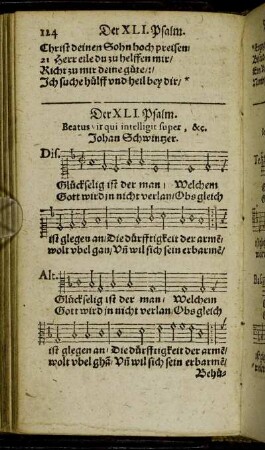 124 Der XLI. Psalm.
Christ deinen Sohn hoch preisen/
21 Herr eile du zu helffen mir/
Richt zu mir deine güte/:/
Ich suche hülff vnd heil bey dir/ *
Der XLI. Psalm.
Beatus vir qui intelligit super, &c.
Johan Schwintzer.
Dis.
Glückselig ist der man/ Welchem
Gott wird in nicht verlan/ Obs gleich
ist glegen an/ Die dürfftigkeit der armẽ/
wolt vbel gan/ Vñ wil sich sein erbarmẽ/
Alt.
Glückselig ist der man/ Welchem
Gott wird in nicht verlan/ Obs gleich
ist glegen an/ Die dürfftigkeit der armẽ/
wolt vbel ghã/ Vñ wil sich sein erbarmẽ/
Behü-